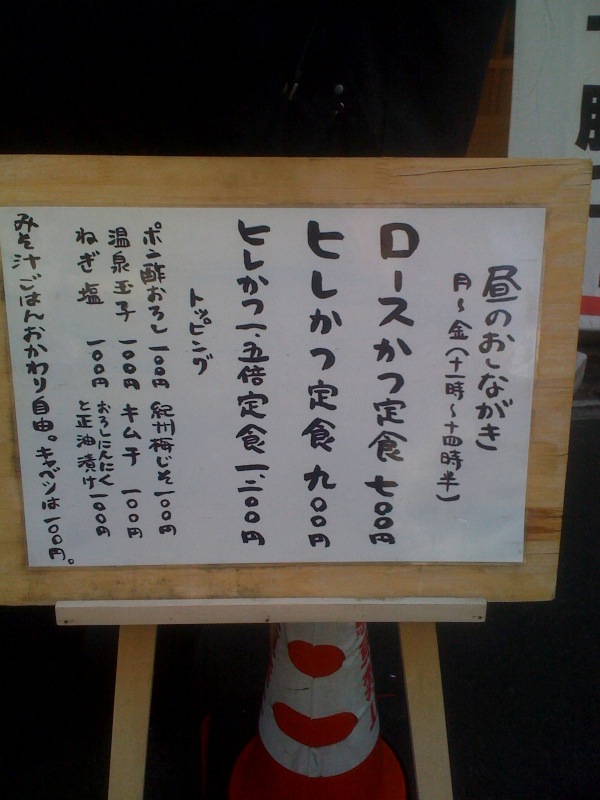 昼のおしながき
月〜金(十一時〜十四時半)
ロースかつ定食 七〇〇円
ヒレかつ定食 九〇〇円
ヒレかつ一.五倍定食 一二〇〇円
トッピング
ポン酢おろし 一〇〇円 紀州梅じそ 一〇〇円
温泉玉子 一〇〇円 キムチ 一〇〇円
ねぎ塩 一〇〇円 おろしにんにくと正油漬け 一〇〇円
みそ汁ごはんおかわり自由。キャベツは一〇〇円。